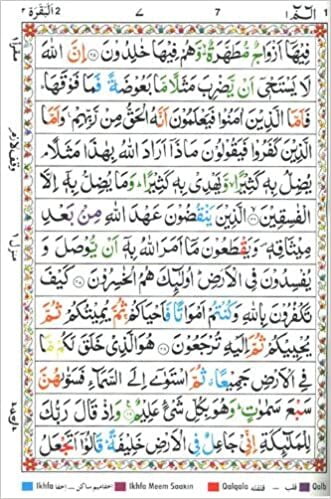 البقرة ٢
٧
7
الٓمّٓ ١
فِيْهَآ اَزْوَاجٌ مُّطَهَّرَةٌ وَّهُمْ فِيْهَا خٰلِدُوْنَ ۝٢٥ اِنَّ اللّٰهَ
لَا يَسْتَحْيٖٓ اَنْ يَّضْرِبَ مَثَلًا مَّا بَعُوْضَةً فَمَا فَوْقَهَا
فَاَمَّا الَّذِيْنَ اٰمَنُوْا فَيَعْلَمُوْنَ اَنَّهُ الْحَقُّ مِنْ رَّبِّهِمْ وَاَمَّا
الَّذِيْنَ كَفَرُوْا فَيَقُوْلُوْنَ مَاذَآ اَرَادَ اللّٰهُ بِهٰذَا مَثَلًا ۘ
يُضِلُّ بِهٖ كَثِيْرًا وَّيَهْدِيْ بِهٖ كَثِيْرًا ؕ وَمَا يُضِلُّ بِهٖٓ اِلَّا
الْفٰسِقِيْنَ ۝٢٦ الَّذِيْنَ يَنْقُضُوْنَ عَهْدَ اللّٰهِ مِنْۢ بَعْدِ
مِيْثَاقِهٖ ۪ وَيَقْطَعُوْنَ مَآ اَمَرَ اللّٰهُ بِهٖٓ اَنْ يُّوْصَلَ وَ
يُفْسِدُوْنَ فِي الْاَرْضِ ؕ اُولٰٓئِكَ هُمُ الْخٰسِرُوْنَ ۝٢٧ كَيْفَ
تَكْفُرُوْنَ بِاللّٰهِ وَكُنْتُمْ اَمْوَاتًا فَاَحْيَاكُمْ ۚ ثُمَّ يُمِيْتُكُمْ ثُمَّ
يُحْيِيْكُمْ ثُمَّ اِلَيْهِ تُرْجَعُوْنَ ۝٢٨ هُوَ الَّذِيْ خَلَقَ لَكُمْ مَّا
فِي الْاَرْضِ جَمِيْعًا ۗ ثُمَّ اسْتَوٰٓى اِلَى السَّمَآءِ فَسَوّٰىهُنَّ
سَبْعَ سَمٰوٰتٍ ؕ وَهُوَ بِكُلِّ شَيْءٍ عَلِيْمٌ ۝٢٩ وَاِذْ قَالَ رَبُّكَ
لِلْمَلٰٓئِكَةِ اِنِّيْ جَاعِلٌ فِي الْاَرْضِ خَلِيْفَةً ؕ قَالُوْٓا اَتَجْعَلُ
وقف لازم
منزل ١
Ikhfa اخفا
Ikhfa Meem Saakin اخفا میم ساکن
Qalqala قلقله
Qalb قلب